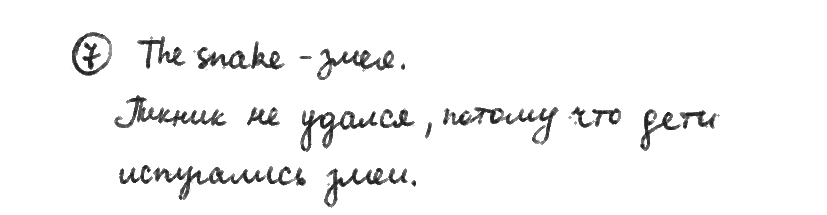 ⑦ The snake - змея.
Пикник не удался, потому что дети
испугались змеи.